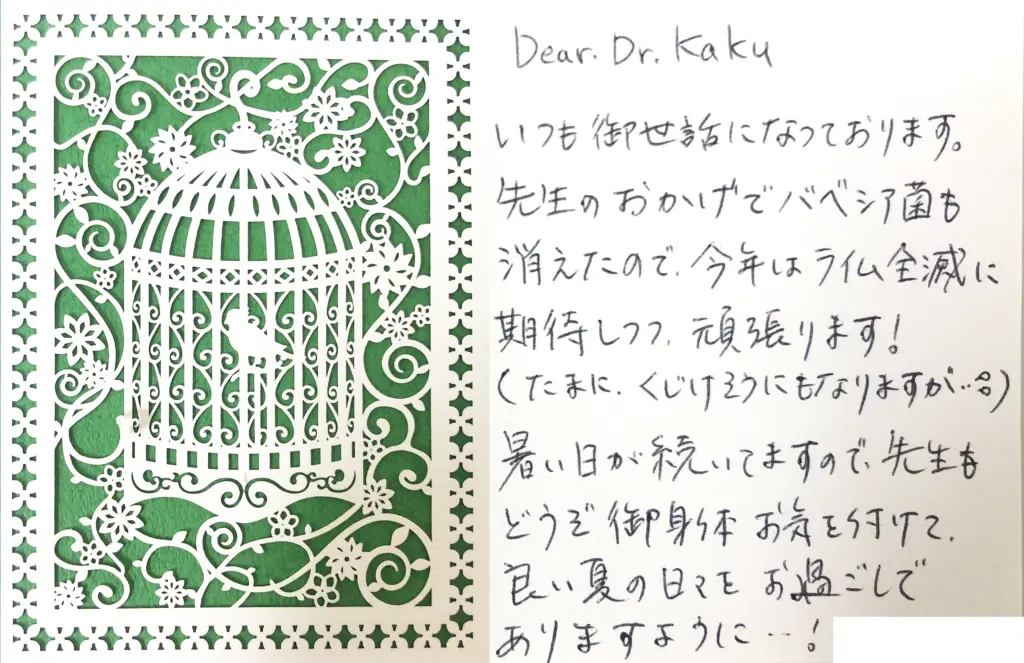 Dear. Dr. Kaku
いつも御世話になっております。
先生のおかげでバベシア菌も
消えたので、今年はライム全滅に
期待しつつ、頑張ります!
(たまに、くじけそうにもなりますが‥。)
暑い日が続いてますので、先生も
どうぞ御身体お気を付けて、
良い夏の日々をお過ごしで
ありますように‥!